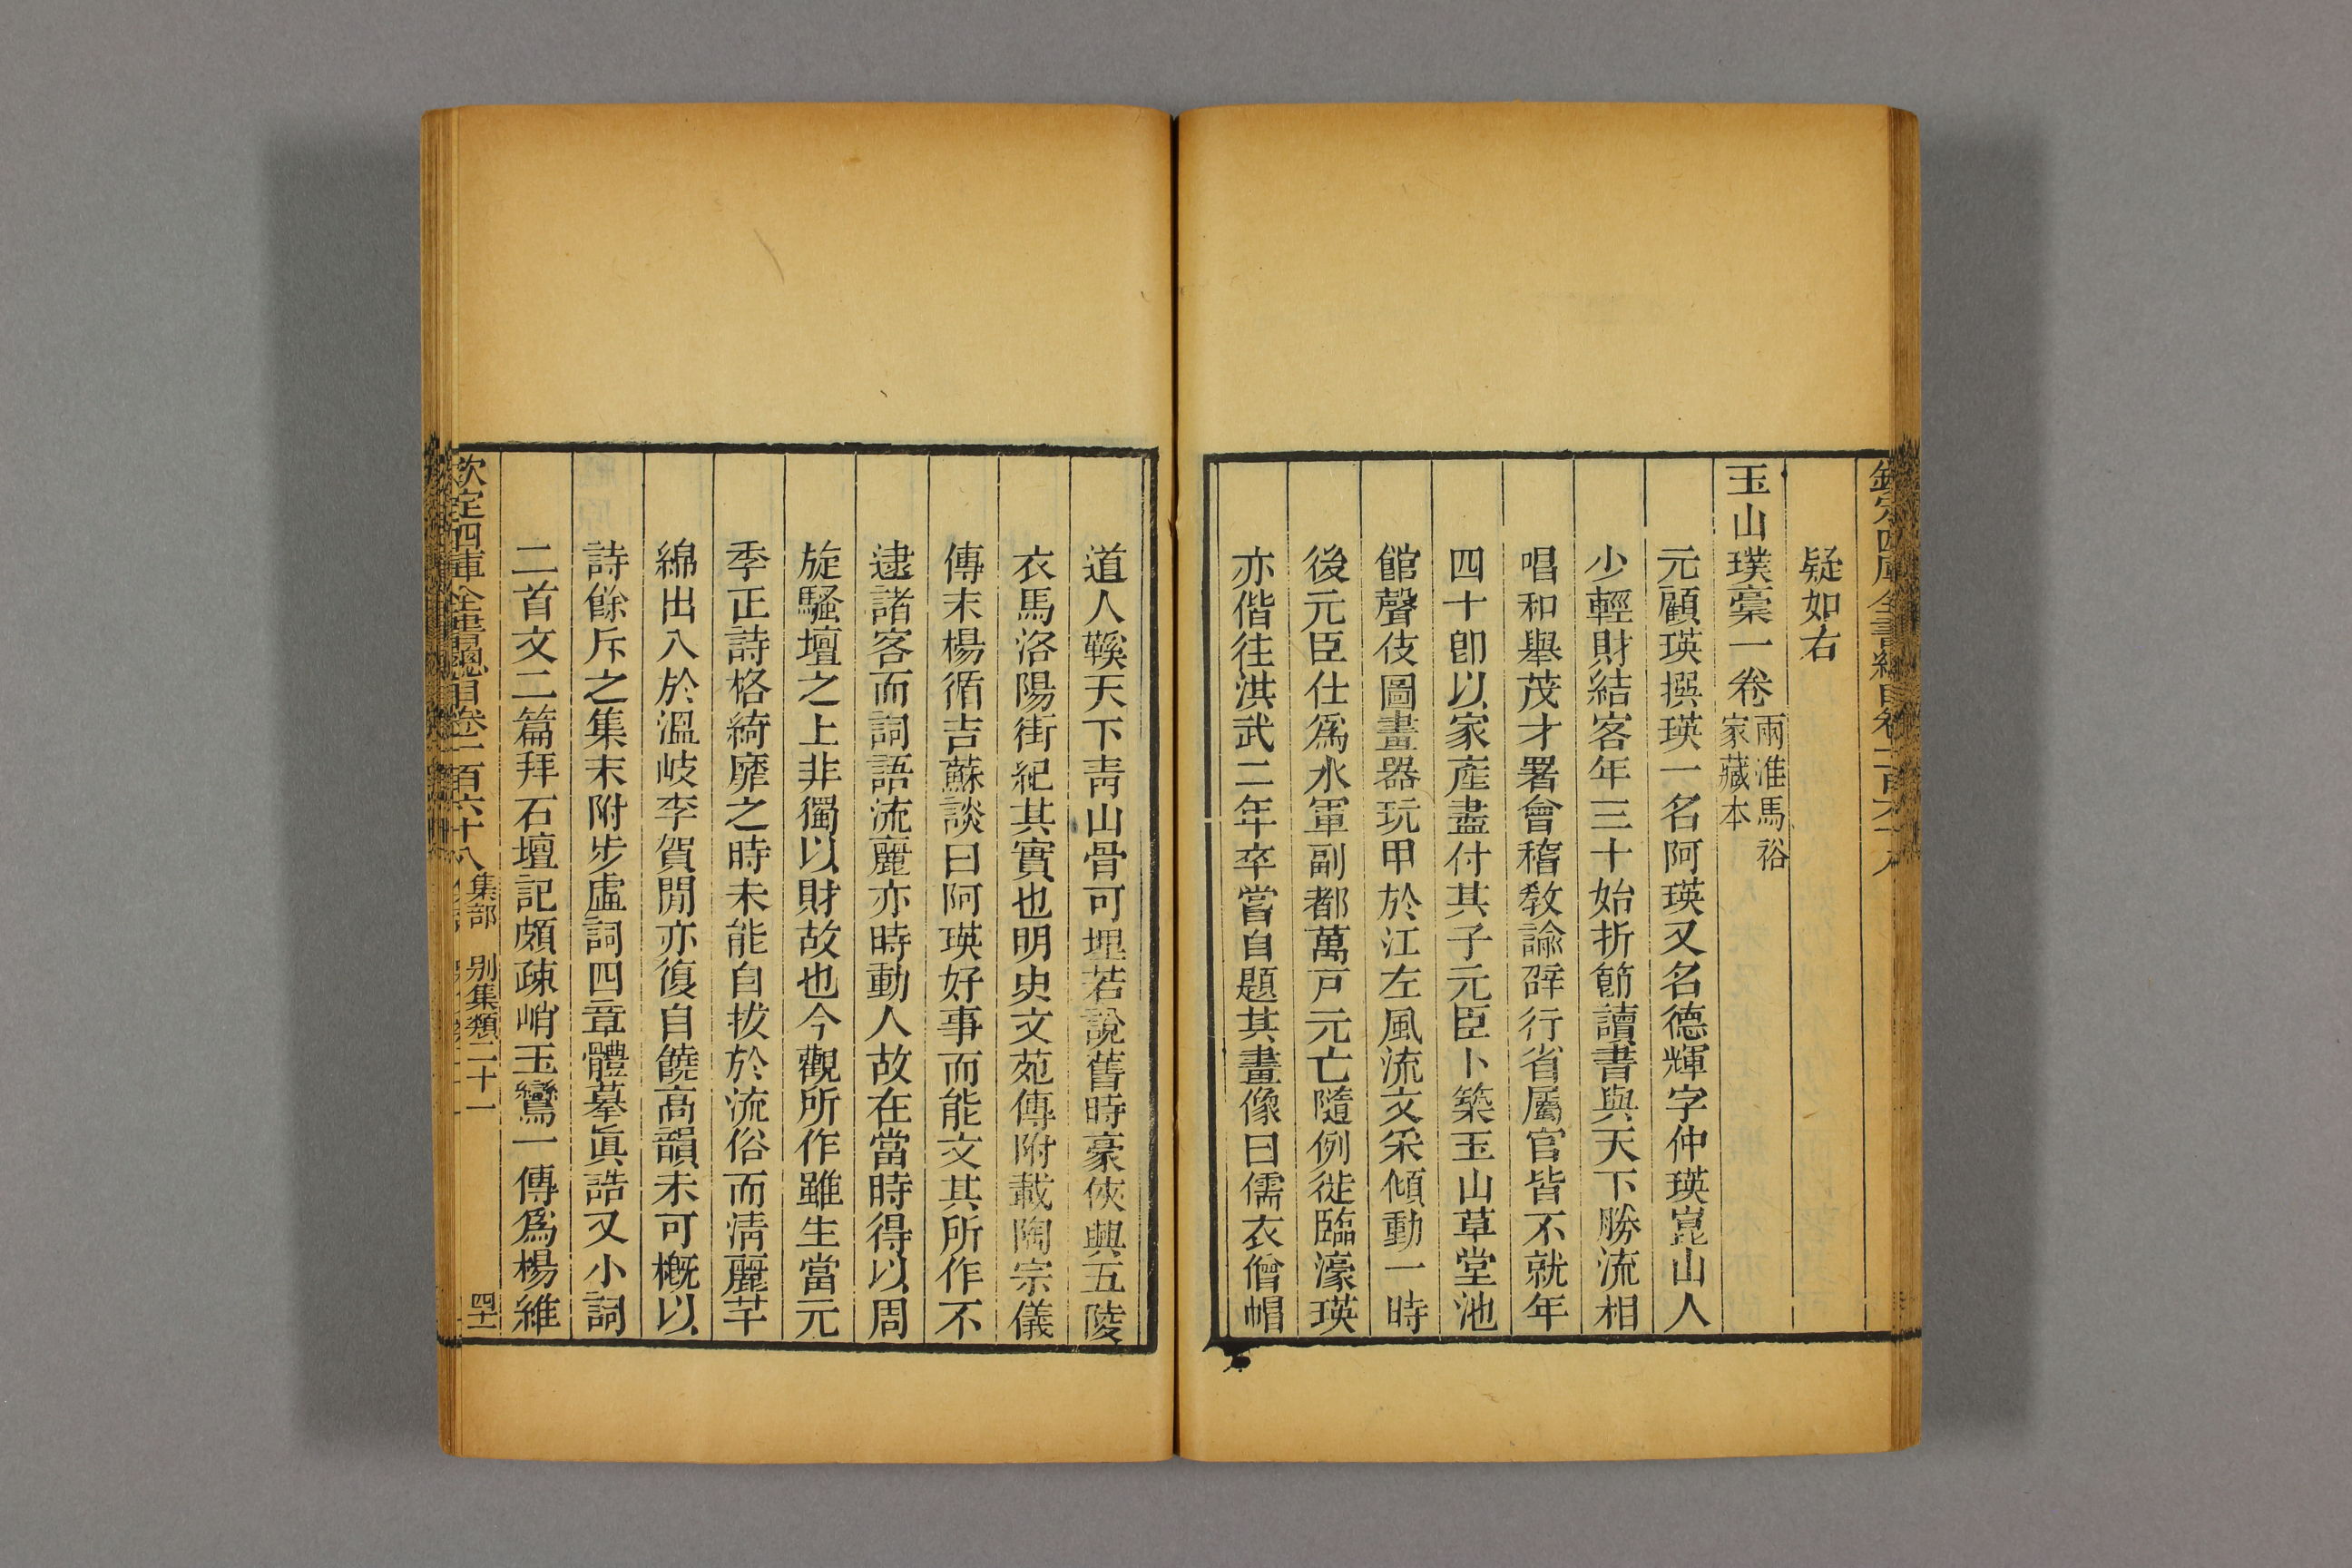 欽定四庫全書總目卷一百六十八
疑如右
玉山璞稾一卷 兩淮馬裕家藏本
元顧瑛撰瑛一名阿瑛又名德輝字仲瑛崑山人
少輕財結客年三十始折節讀書與天下勝流相
唱和舉茂才署會稽敎諭辟行省屬官皆不就年
四十卽以家產盡付其子元臣卜築玉山草堂池
館聲伎圖畫器玩甲於江左風流文采傾動一時
後元臣仕爲水軍副都萬戸元亡隨例徙臨濠瑛
亦偕往洪武二年卒嘗自題其畫像曰儒衣僧帽
道人鞵天下靑山骨可埋若說舊時豪俠興五陵
衣馬洛陽街紀其實也明史文苑傳附載陶宗儀
傳末楊循吉蘇談曰阿瑛好事而能文其所作不
逮諸客而詞語流麗亦時動人故在當時得以周
旋騷壇之上非獨以財故也今觀所作雖生當元
季正詩格綺靡之時未能自拔於流俗而淸麗芊
綿出入於溫岐李賀閒亦復自饒高韻未可槪以
詩餘斥之集末附步虛詞四章體摹眞誥又小詞
二首文二篇拜石壇記頗疎峭玉鸞一傳爲楊維
欽定四庫全書總目卷一百六十八 集部 別集類二十一 四十一